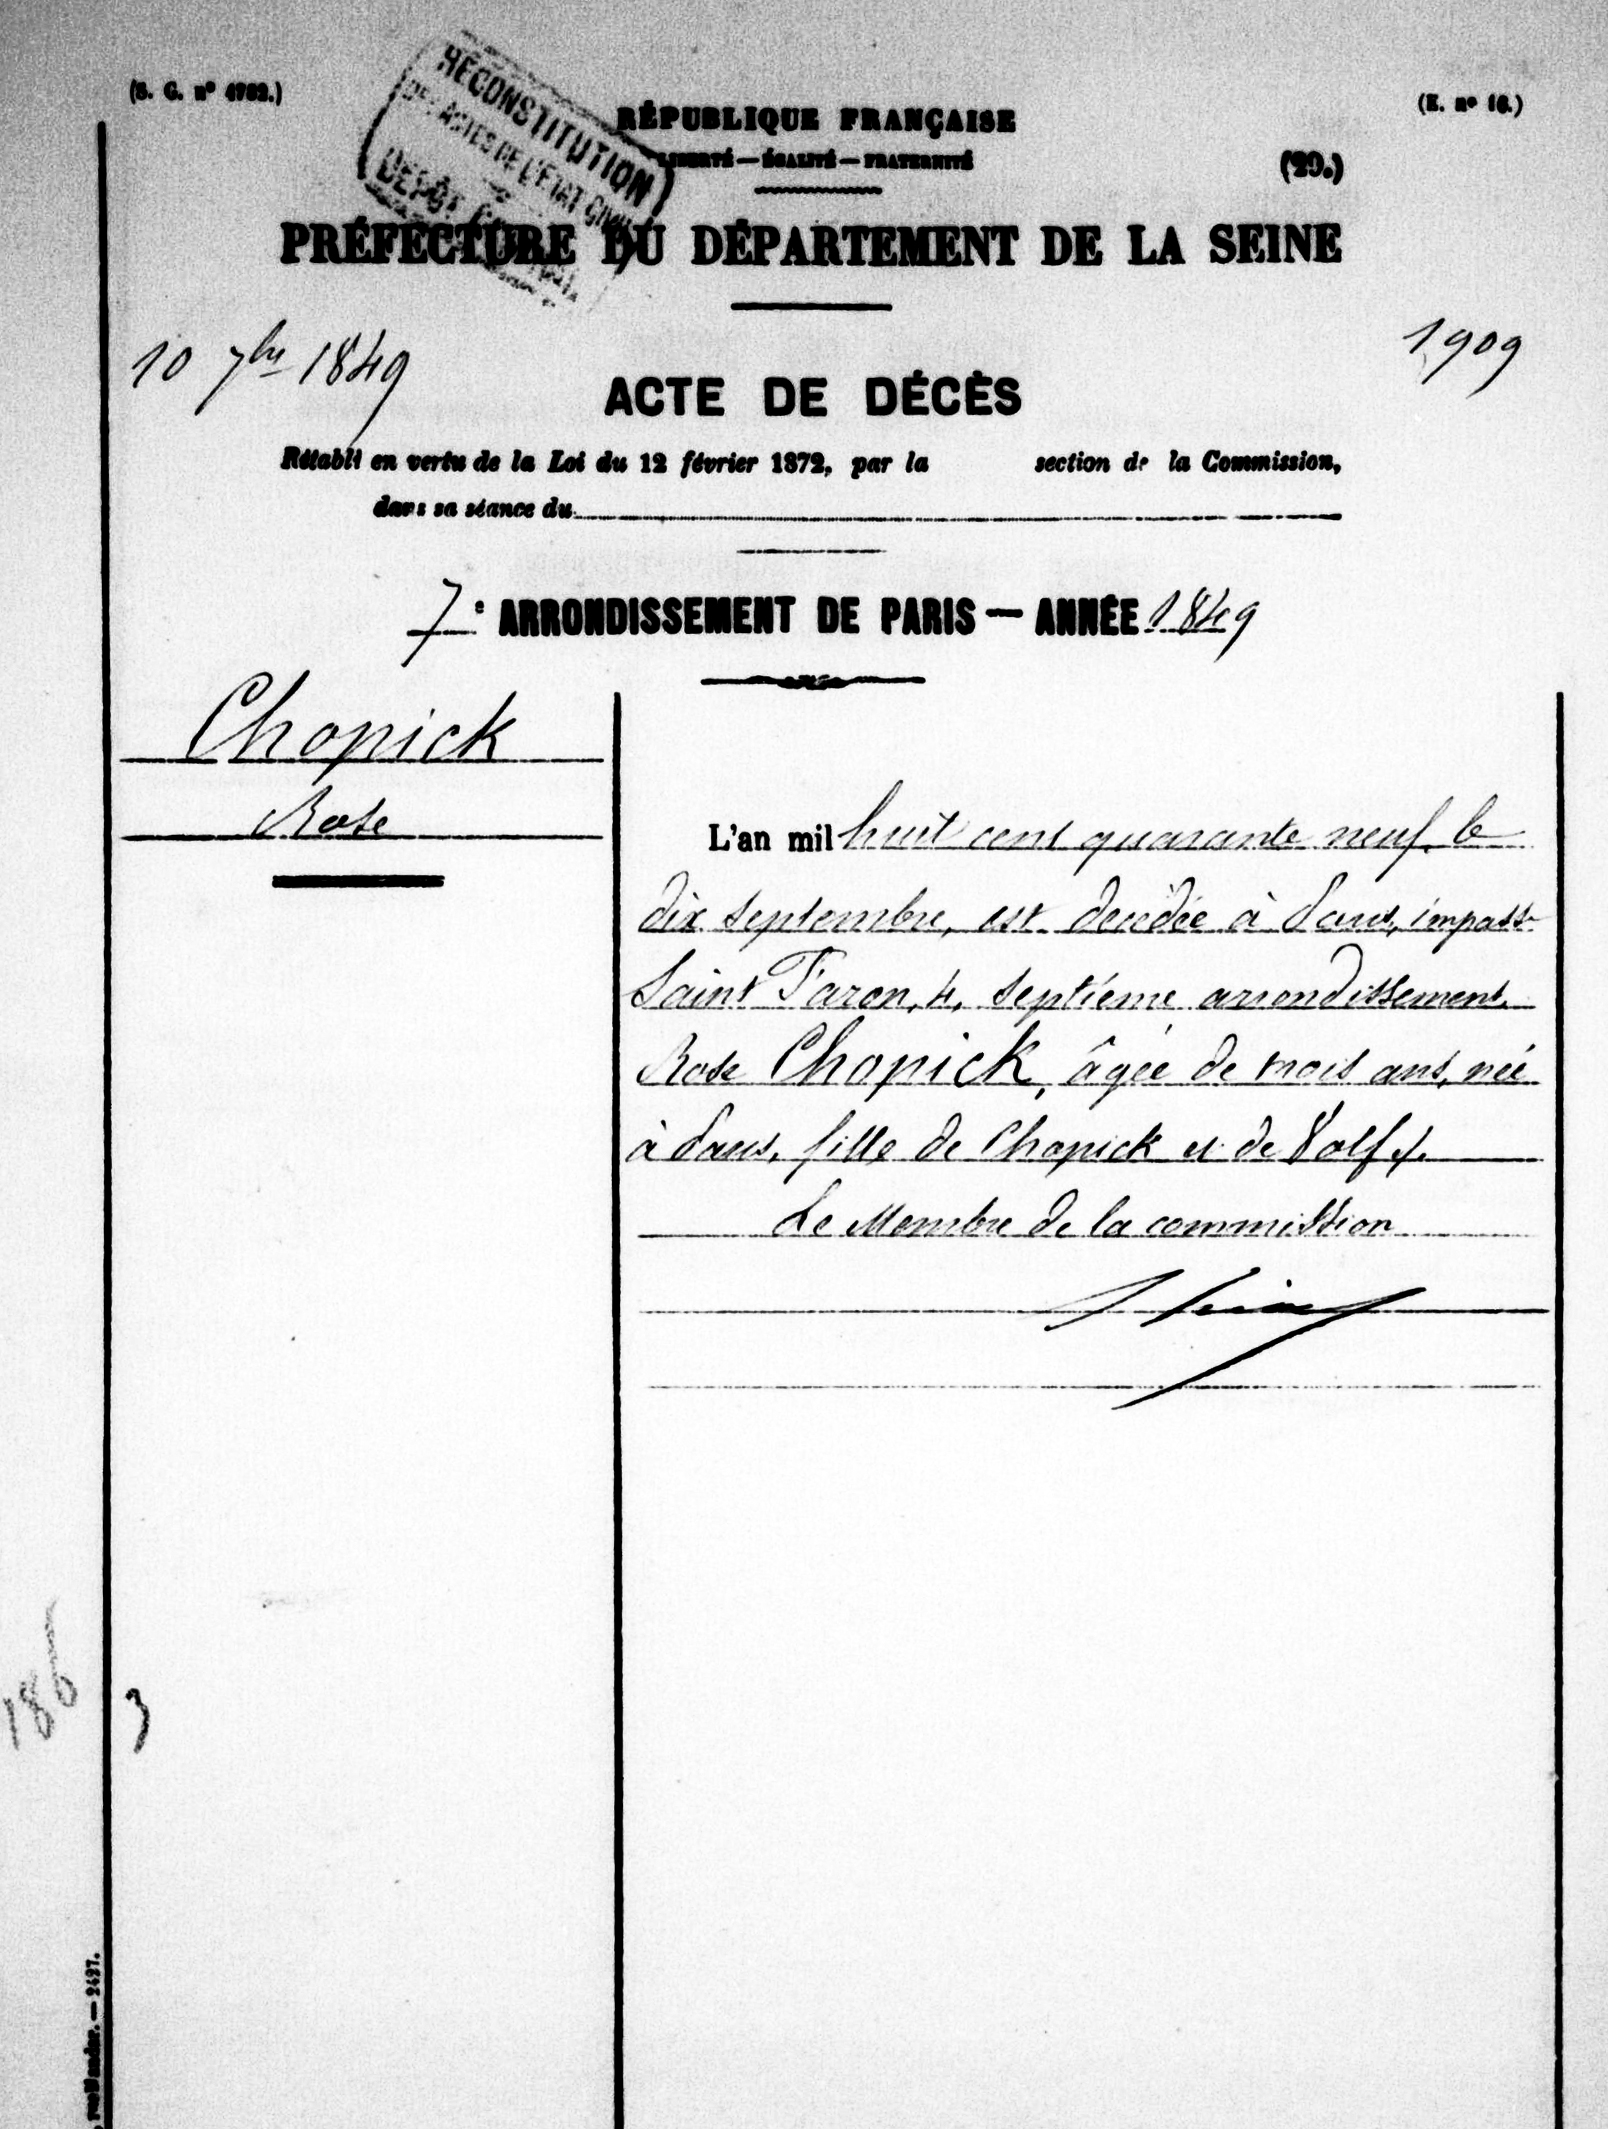 (S. G. nº 4762.)
(E. nº 16.)
RECONSTITUTION
DES ACTES DE L'ÉTAT CIVIL
DÉPÔT
RÉPUBLIQUE FRANÇAISE
LIBERTÉ — ÉGALITÉ — FRATERNITÉ
(29.)
PRÉFECTURE DU DÉPARTEMENT DE LA SEINE
10 7bre 1849
1909
ACTE DE DÉCÈS
Rétabli en vertu de la Loi du 12 février 1872, par la section de la Commission,
dans sa séance du
7e ARRONDISSEMENT DE PARIS — ANNÉE 1849
Chopick
Rose
L'an mil huit cent quarante neuf, le
dix septembre, est décédée à Paris, impasse
Saint Faron, 4, septième arrondissement
Rose Chopick, âgée de trois ans, née
à Paris, fille de Chopick et de Volf ./.
Le Membre de la commission
186
3
— 2497.